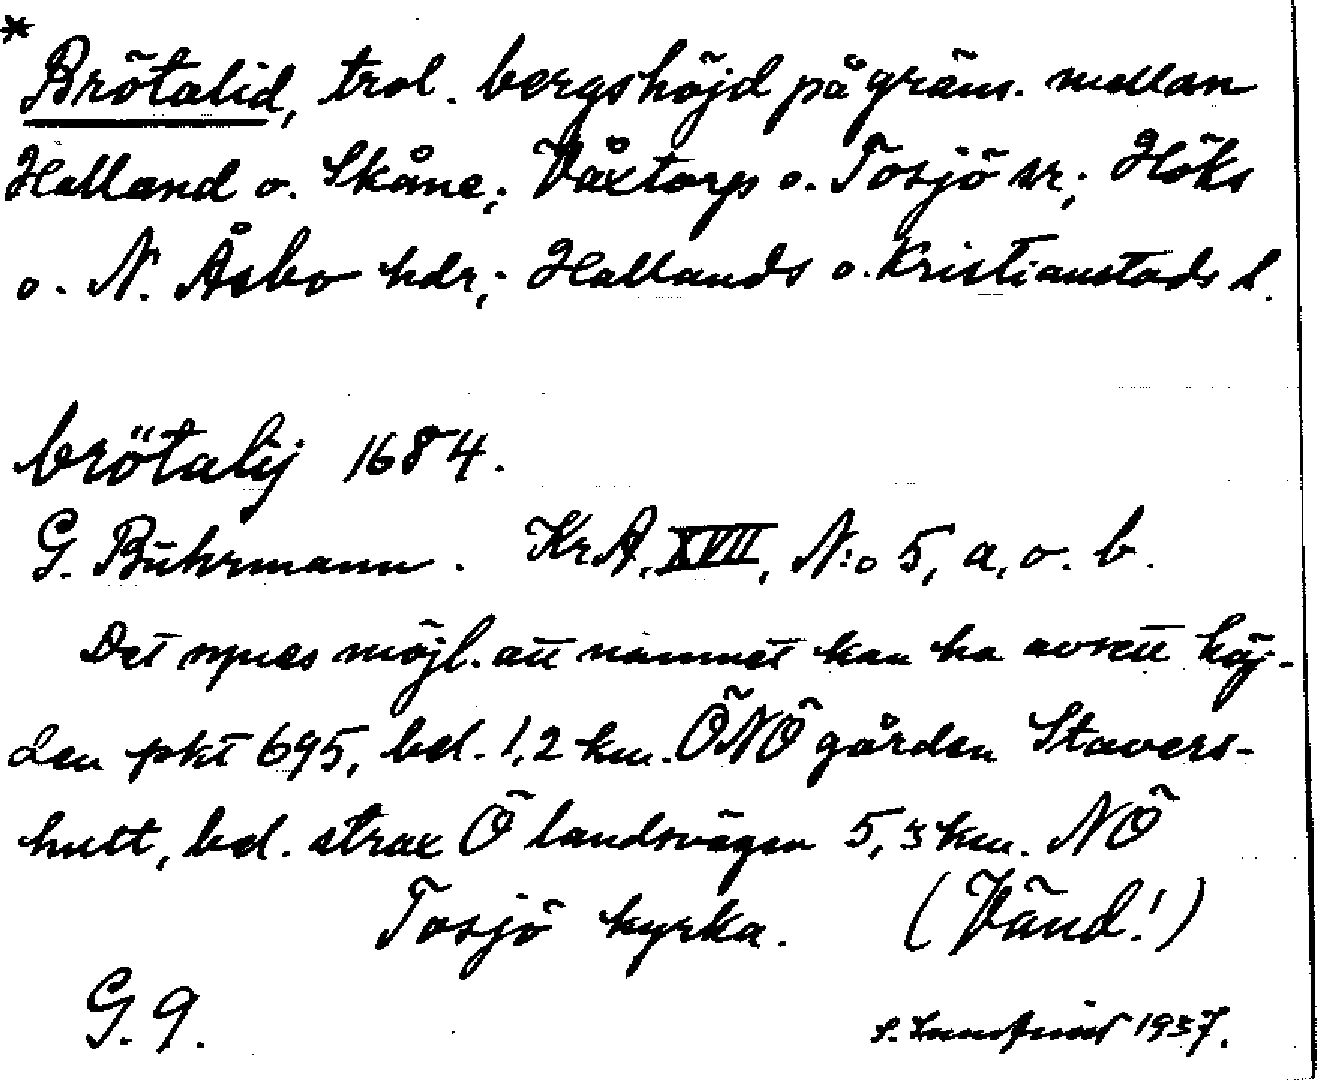 *
Brötalid, trol. bergshöjd på gräns. mellan
Halland o. Skåne; Våxtorp o. Tosjö snr; Höks
o. N. Åsbo hdr; Hallands o. Kristianstads l.
brötalij 1684.
G. Buhrmann. KrA, XVII, N:o 5, a, o. b.
Det synes möjl. att namnet kan ha avsett höj-
den pkt 695, bel. 1,2 km. ÖNÖ gården Stavers-
hult, bel. strax Ö landsvägen 5,3 km. NÖ
Tosjö kyrka. (Vänd!)
G. 9.
1937.